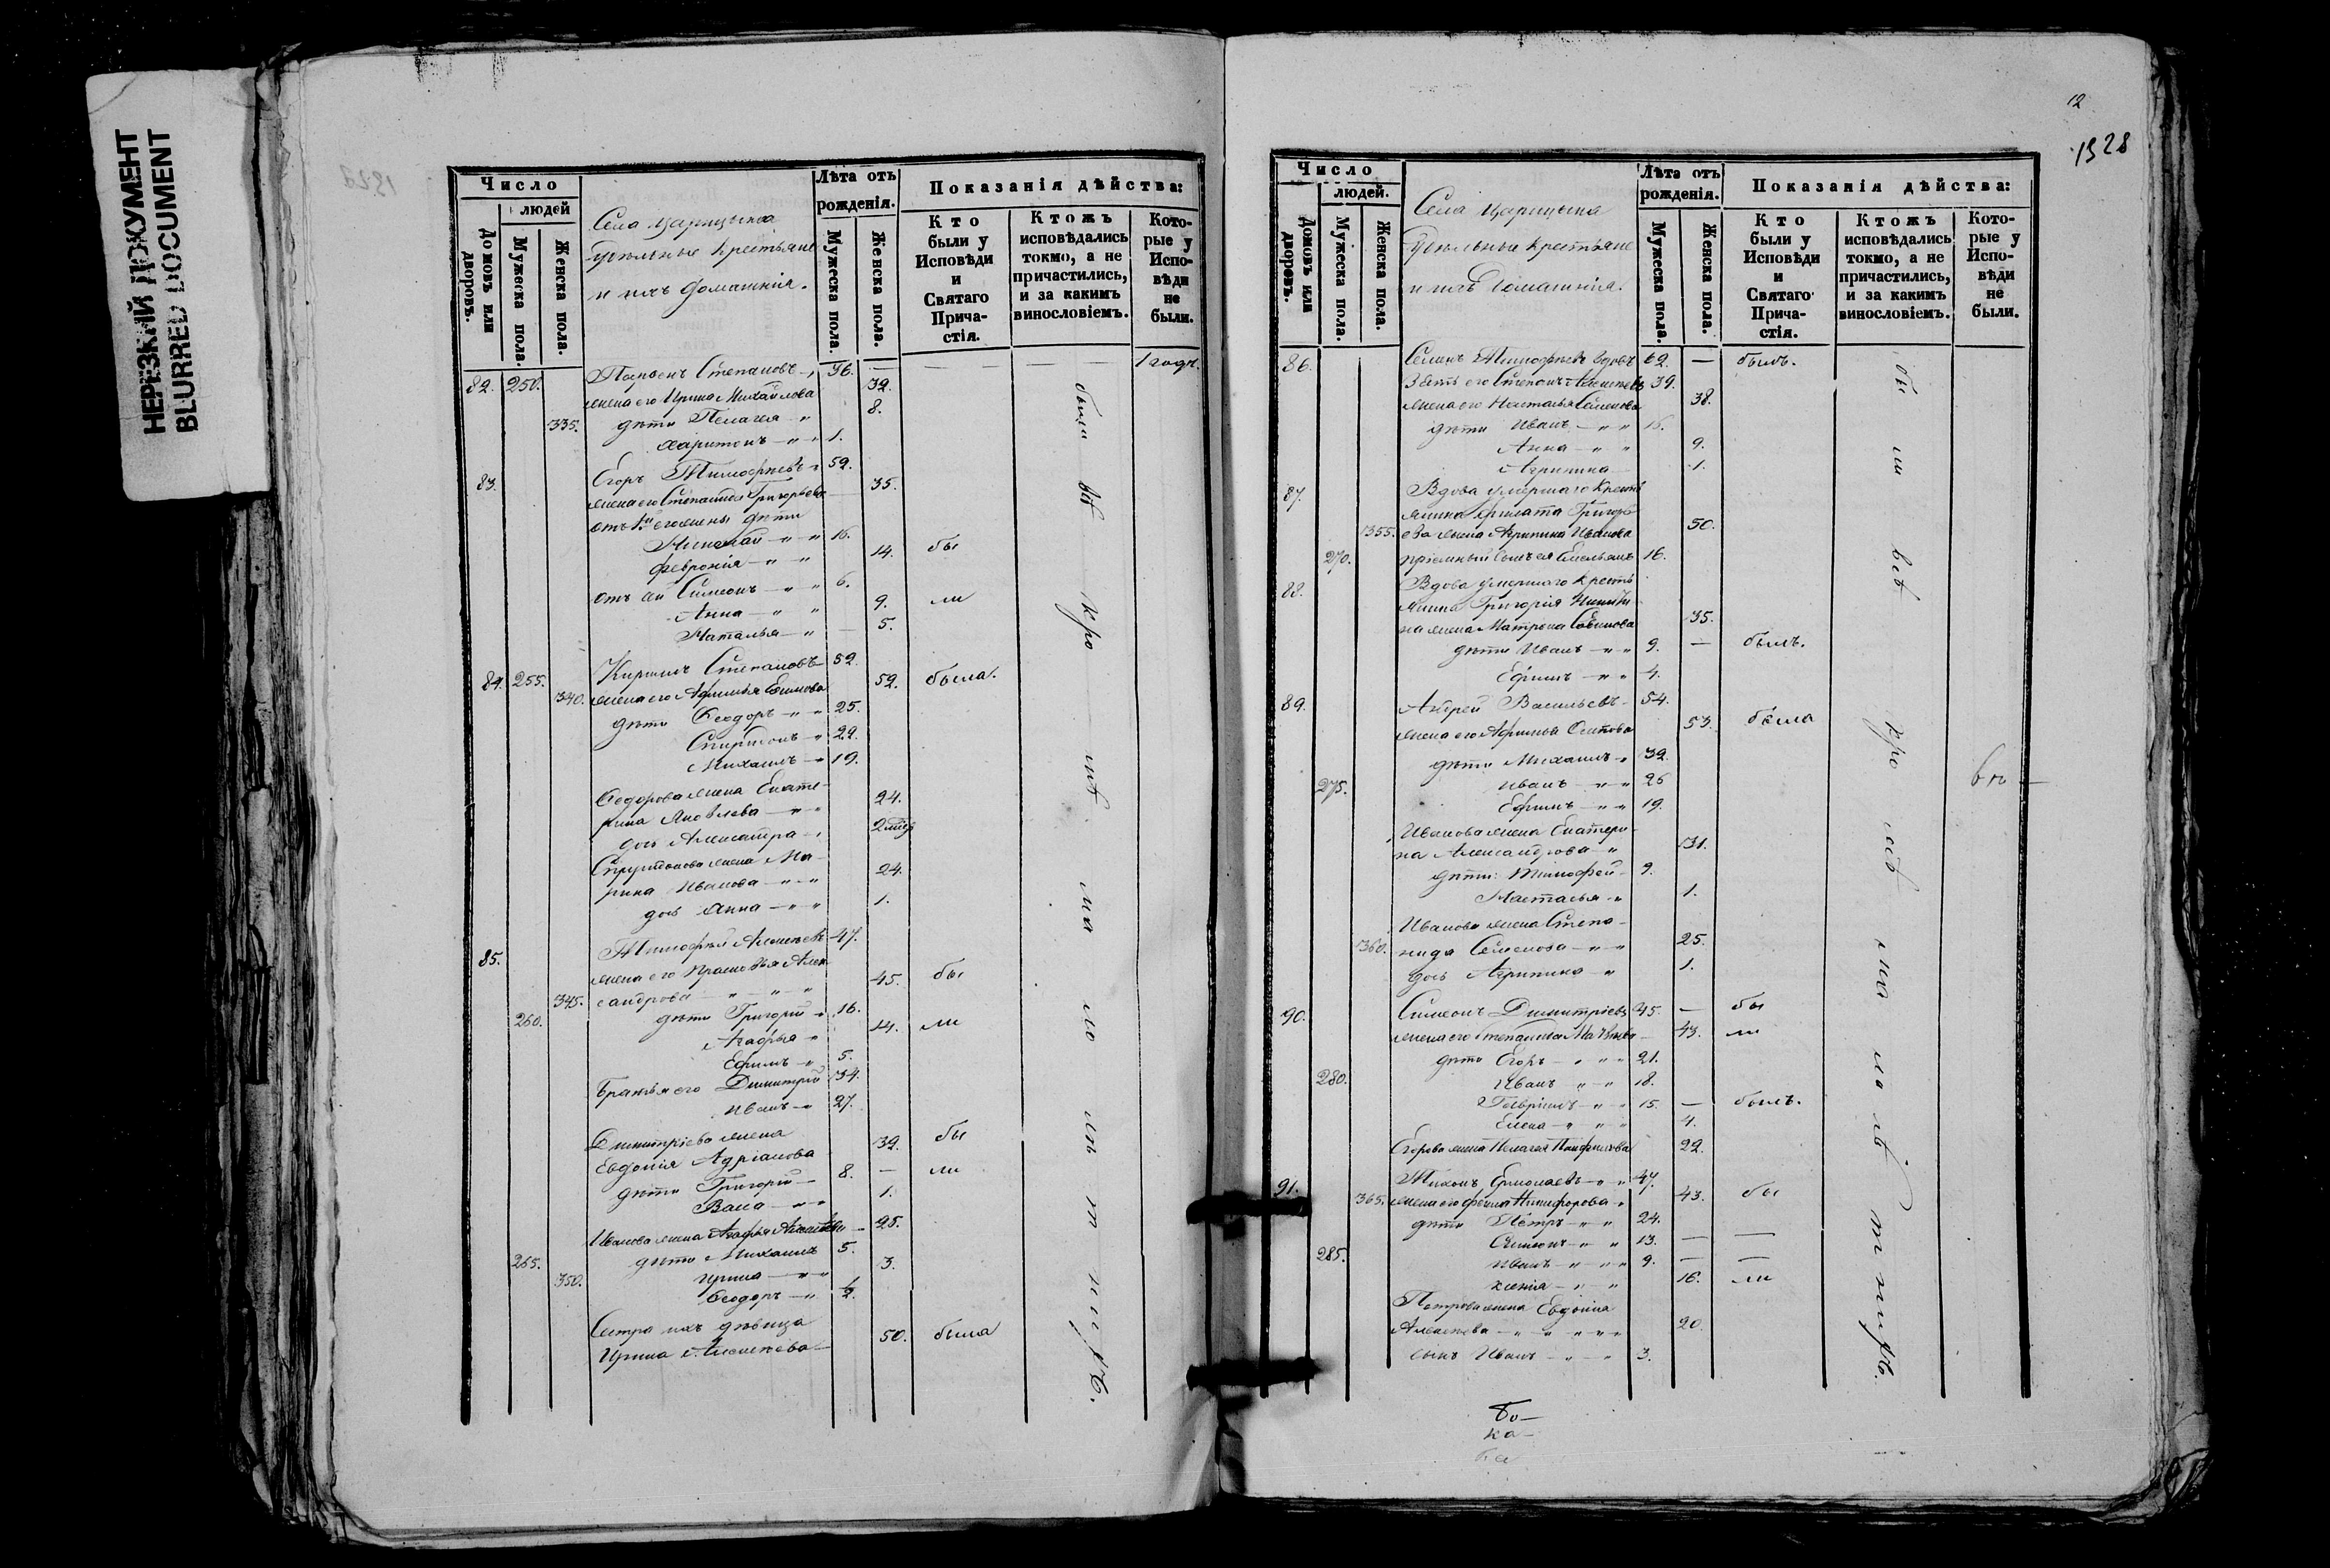 НЕРЕЗКИЙ ДОКУМЕНТ
BLURRED DOCUMENT
Число
людей
Домовъ или дворовъ.
Мужеска пола.
Женска пола.
Села Царицына
Удѣльные крестьяне
и ихъ домашнія.
Лѣта отъ рожденія.
Мужеска пола.
Женска пола.
Показанія дѣйства:
Кто были у Исповѣди и Святаго Прича-стія.
Ктожъ исповѣдались токмо, а не причастились, и за какимъ винословіемъ.
Кото-рые у Испо-вѣди не были.
82. 250. Степановъ 36. — 1 годъ
жена его Ирина Михайлова 32.
335. дѣти Пелагея 8.
Харитонъ 1.
83. Егоръ Тимофѣевъ 52.
жена его Степанида Григорьева 35.
отъ 1й его жены дѣти
Николай 16.
Февронія 14. бы
отъ сей Симеонъ 6.
Анна 9. ли
Наталья 5.
84. 255. Кирилъ Степановъ 52.
340. жена его Афимья Ефимова 52. была.
дѣти Феодоръ 25.
Спиридонъ 22.
Михаилъ 19.
Феодорова жена Екате-
рина Яковлева 24.
дочь Александра
Спиридонова жена Ма-
рина Иванова 24.
дочь Анна 1.
85. Тимофей Алексѣевъ 47.
жена его Прасковья Алек-
345. сандрова 45. бы
260. дѣти Григорій 16.
Агафья 14. ли
Ефимъ 5.
Братья его Димитрій 34.
Иванъ 27.
Димитріева жена
Евдокія Адріанова 32. бы
дѣти Григорій 8. — ли
Васа 1.
Иванова жена Агафья 25.
265. дѣти Михаилъ 5.
350. Ирина 3.
Феодоръ 1/2.
Сестра ихъ дѣвица
Ирина Алексѣева 50. была
12
1328
Число
людей.
Домовъ или дворовъ.
Мужеска пола.
Женска пола.
Села Царицына
Удѣльные крестьяне
и ихъ домашнія.
Лѣта отъ рожденія.
Мужеска пола.
Женска пола.
Показанія дѣйства:
Кто были у Исповѣди и Святаго Прича-стія.
Ктожъ исповѣдались токмо, а не причастились, и за какимъ винословіемъ.
Кото-рые у Испо-вѣди не были.
86. Тимофѣевъ вдовъ 62. — былъ.
Зять его Степанъ Алексѣевъ 39.
жена его Наталья Семенова 38.
дѣти Иванъ 15.
Анна 9.
Агрипина 1.
87. Вдова умершаго кресть
янина Григорь
355. ева жена Агрипина Иванова 50.
270. пріемный сынъ ея Емельянъ 16.
88. Вдова умершаго кресть
янина Григорія Никити
на жена Матрона Савинова 35.
дѣти Иванъ 9. — былъ.
Ефимъ 4.
89. Андрей Васильевъ 54.
жена его Афимья Осипова 53. была
дѣти Михаилъ 32.
275. Иванъ 26
Ефимъ 19.
Иванова жена Екатери-
на Александрова 31.
дѣти: Тимофей 9.
Наталья 1.
Иванова жена Степа-
360. нида Семенова 25.
дочь Агрипина 1.
90. Симеонъ Димитріевъ 45. — бы
жена его Степанида Матвѣева 43. ли
дѣти Егоръ 21.
280. Иванъ 18.
Гавріилъ 15. — былъ.
Елена 4.
Егорова жена Пелагея Панфилова 22.
91. Тихонъ Ермолаевъ 47.
365. жена его Фекла Никифорова 43. бы
дѣти Петръ 24.
Симеонъ 13. — —
285. Иванъ 9. — —
Ксенія 16. ли
Петрова жена Евдокіа
Алексѣева 20.
сынъ Иванъ 3.